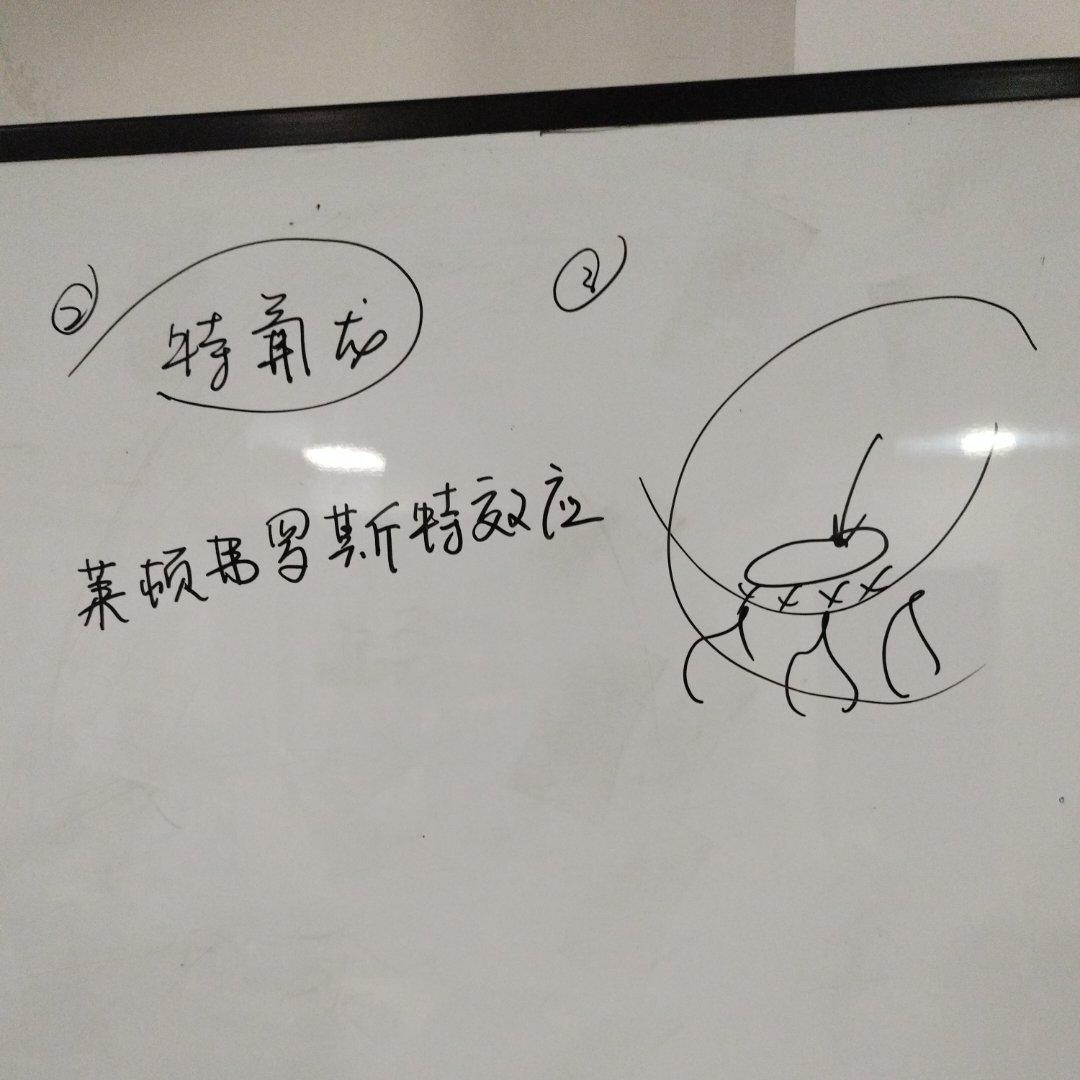 ②
特氟龙
③
莱顿弗罗斯特效应